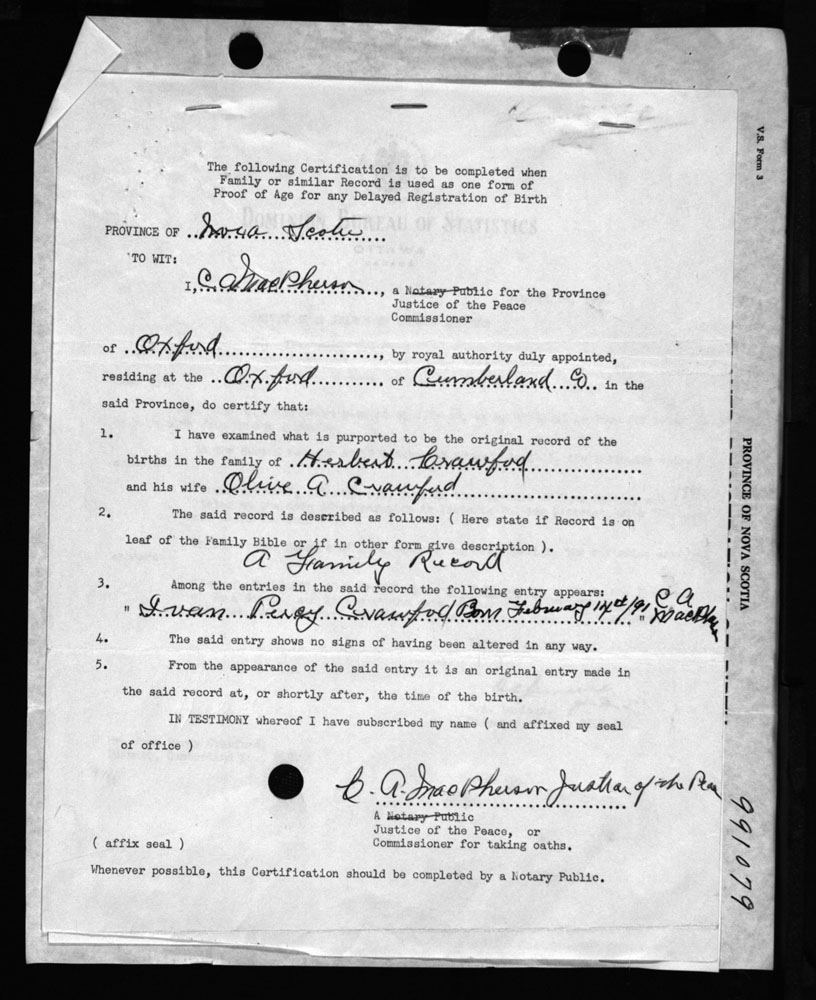 V.S. Form 3
The following Certification is to be completed when
Family or similar Record is used as one form of
Proof of Age for any Delayed Registration of Birth
DOMINION BUREAU OF STATISTICS
OTTAWA
CANADA
PROVINCE OF ..Nova Scotia...
TO WIT:
I, C. A. MacPherson..., a Notary Public for the Province
Justice of the Peace
Commissioner
of ..Oxford......................, by royal authority duly appointed,
residing at the ..Oxford.......... of Cumberland Co.. in the
said Province, do certify that:
1. I have examined what is purported to be the original record of the
births in the family of ..Herbert Crawford................
and his wife ..Olive A Crawford........................
2. The said record is described as follows: ( Here state if Record is on
leaf of the Family Bible or if in other form give description ).
A Family Record
3. Among the entries in the said record the following entry appears:
" Ivan Percy Crawford Born February 14th/91 " C A
MacPher
4. The said entry shows no signs of having been altered in any way.
5. From the appearance of the said entry it is an original entry made in
the said record at, or shortly after, the time of the birth.
IN TESTIMONY whereof I have subscribed my name ( and affixed my seal
of office )
C. A. MacPherson Justice of the Peace
A Notary Public
Justice of the Peace, or
Commissioner for taking oaths.
( affix seal )
Whenever possible, this Certification should be completed by a Notary Public.
PROVINCE OF NOVA SCOTIA
991079